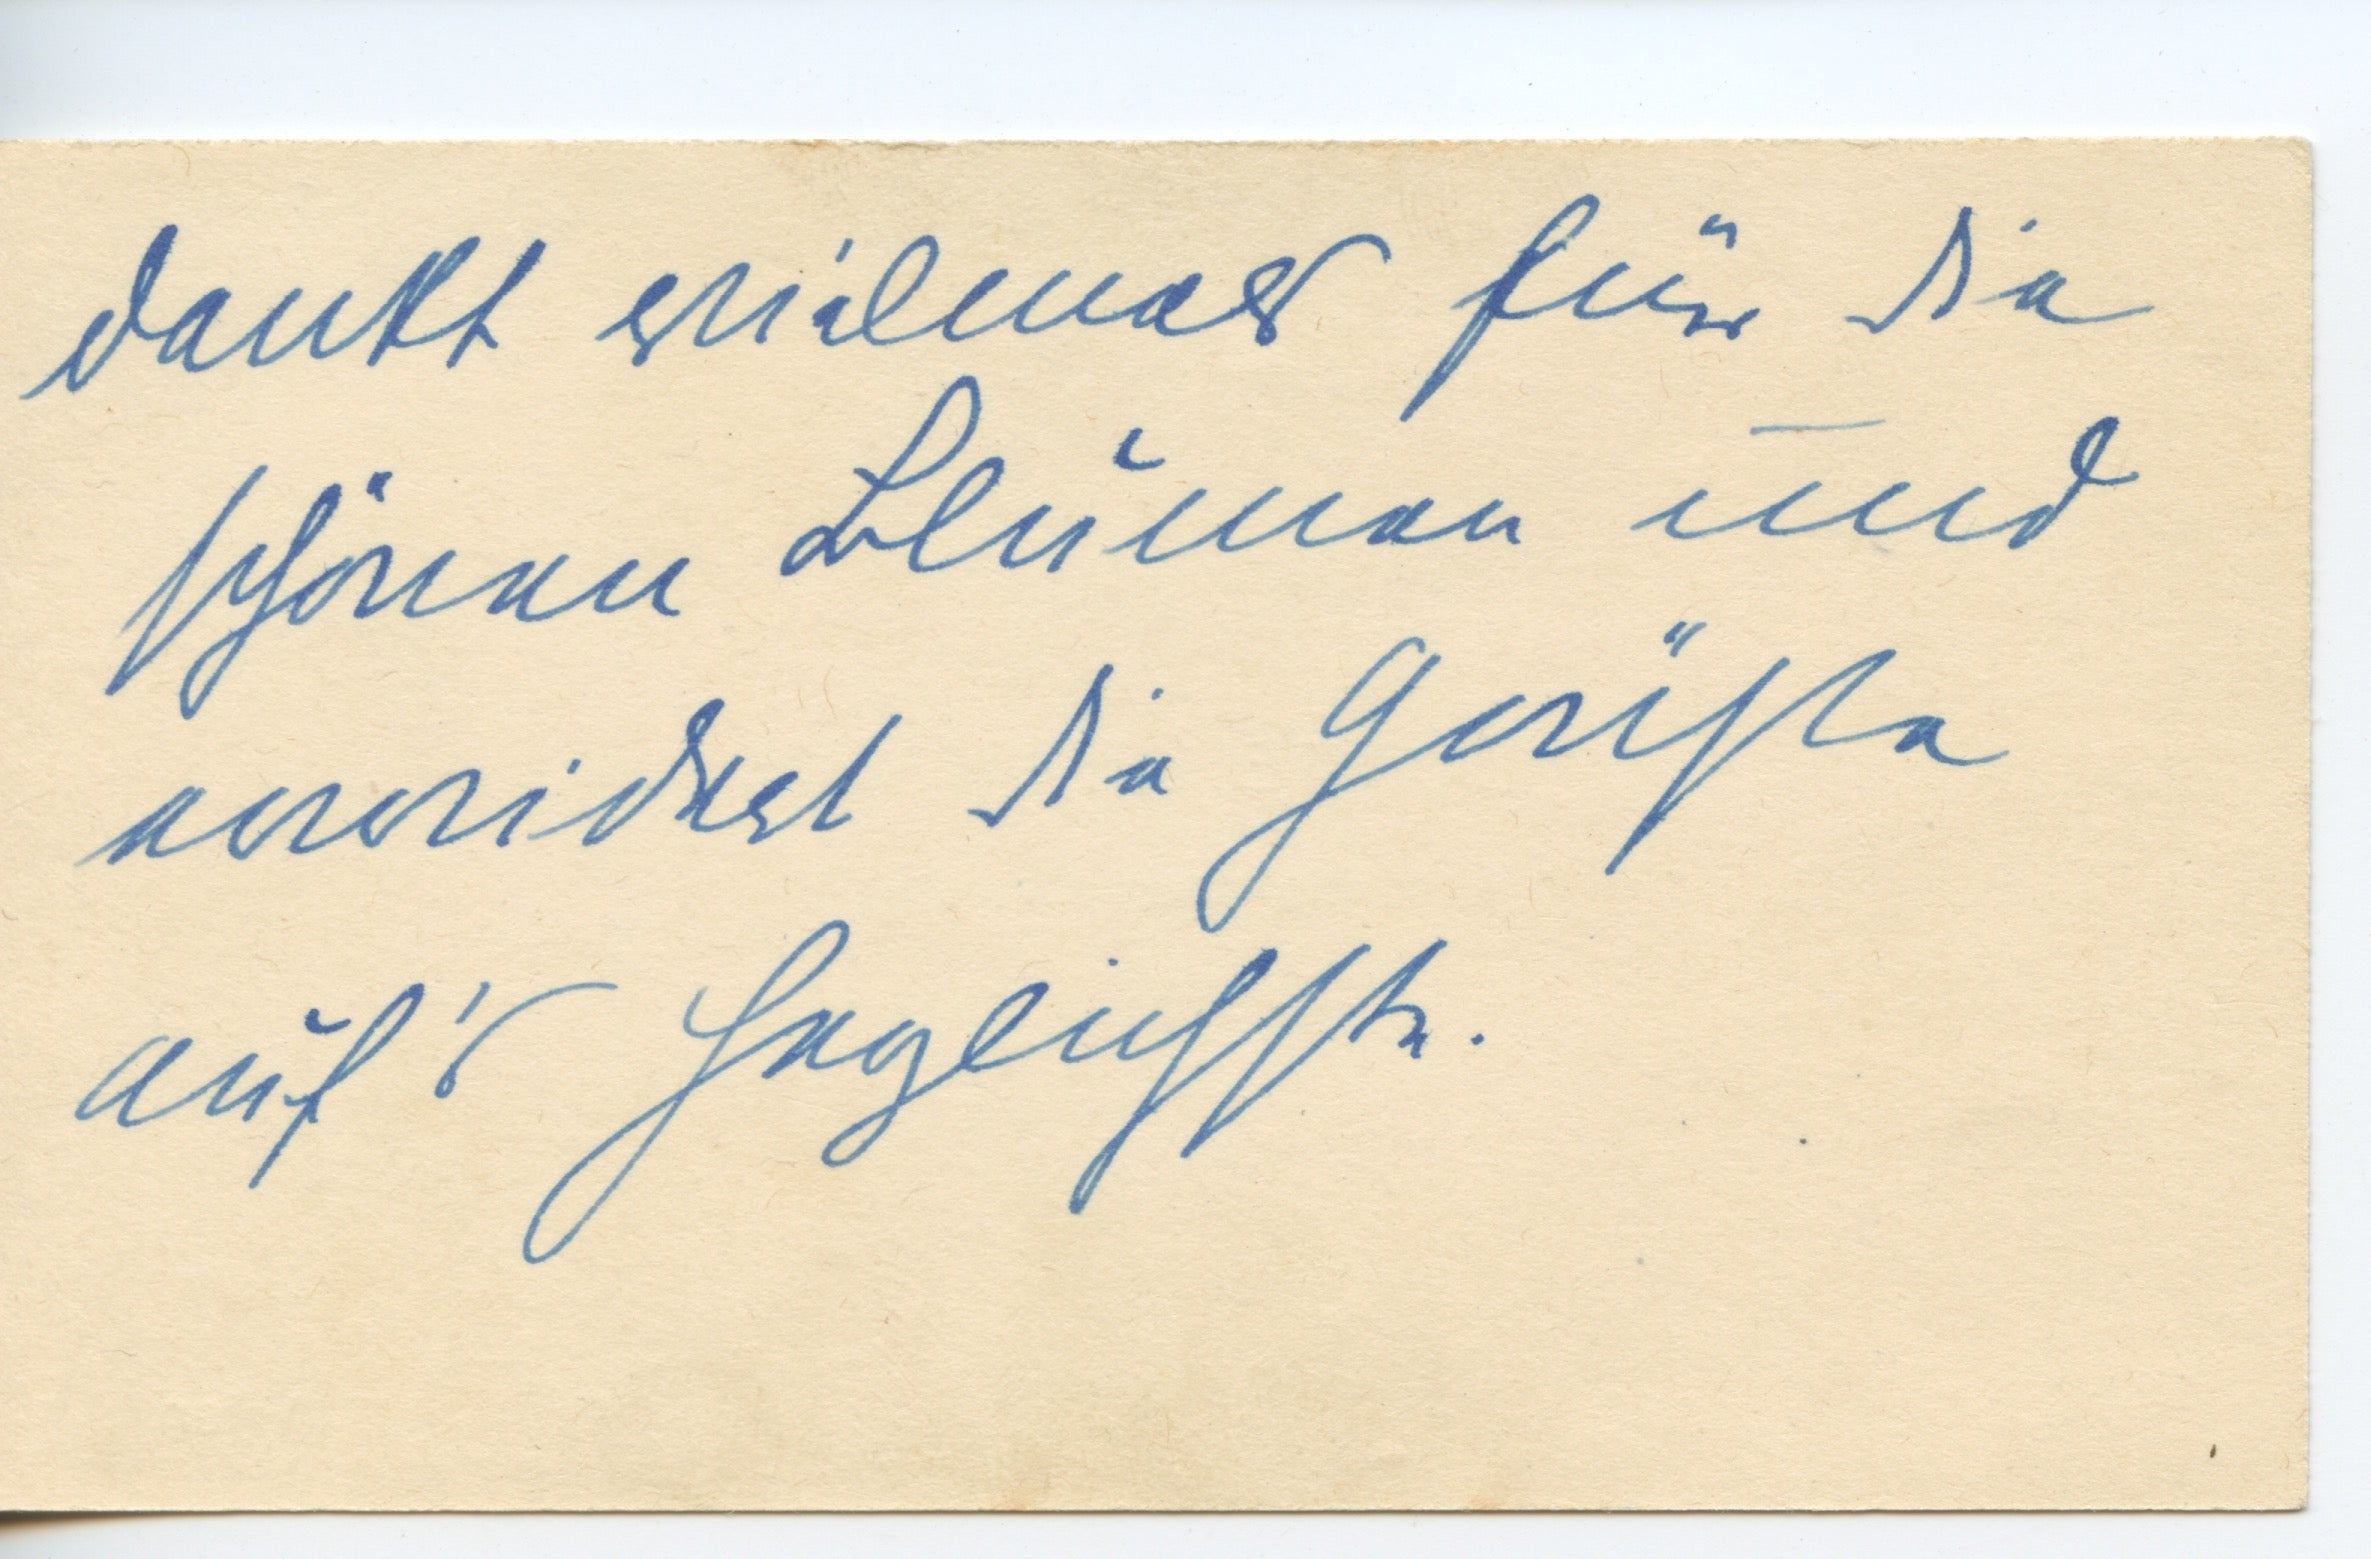 dankt vielmals für die
schönen Blumen und
erwidert die Grüße
auf's Herzlichste.